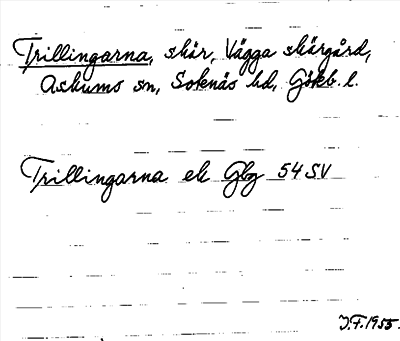 Trillingarna, skär, Vägga skärgård,
Askums sn, Sotenäs hd, Götkb. l.
Trillingarna ek Gbg 54 SV
J.F. 1955.